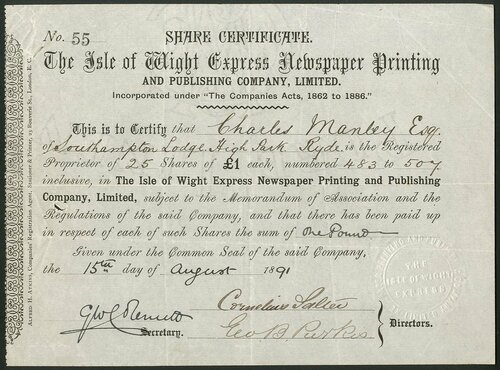 No. 55
SHARE CERTIFICATE.
The Isle of Wight Express Newspaper Printing
AND PUBLISHING COMPANY, LIMITED.
Incorporated under "The Companies Acts, 1862 to 1886."
This is to Certify that Charles Manley Esq.
of Southampton Lodge, High Park Ryde, is the Registered
Proprietor of 25 Shares of £1 each, numbered 483 to 507
inclusive, in The Isle of Wight Express Newspaper Printing and Publishing
Company, Limited, subject to the Memorandum of Association and the
Regulations of the said Company, and that there has been paid up
in respect of each of such Shares the sum of One Pound
Given under the Common Seal of the said Company,
the 15th day of August 1891
Cornelius Salter
Geo B. Purkis
Secretary.
Directors.
THE
ISLE OF WIGHT
EXPRESS